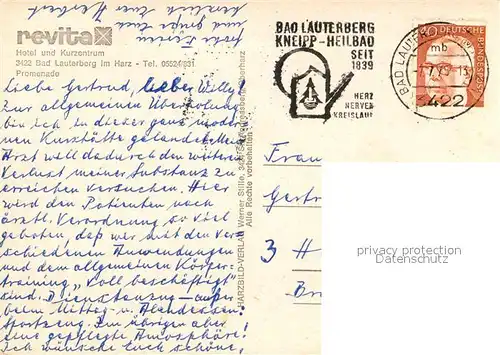 revita
Hotel und Kurzentrum
3422 Bad Lauterberg im Harz - Tel. 05524/831
Promenade
Liebe Gertrud, lieber Willy,
zur allgemeinen Überholung
bin ich in dieser ganz moder-
nen Kurstätte gelandet. Mein
Arzt will dadurch den weiteren
Verlust meiner Substanz zu
erreichen versuchen. Hier
wird den Patienten nach
ärztl. Verordnung so viel
geboten, daß wir mit den ver-
schiedenen Anwendungen
und dem allgemeinen Körper-
training "voll beschäftigt"
sind. Dienstanzug - außer
beim Mittag- u. Abendessen:
Sportzeug. Im übrigen aber
eine gepflegte Atmosphäre!
Ich wünsche Euch schöne,
und grüße Euch
herzlich Euer Herbert
HARZBILD-VERLAG Werner Stille, 3425
Alle Rechte vorbehalten
BAD LAUTERBERG
KNEIPP-HEILBAD
SEIT
1839
HERZ
NERVEN
KREISLAUF
BAD LAUTER
mb
3422
DEUTSCHE BUNDESPOST
Frau
Gertr
3 H
Br
copyright protection
Datenschutz